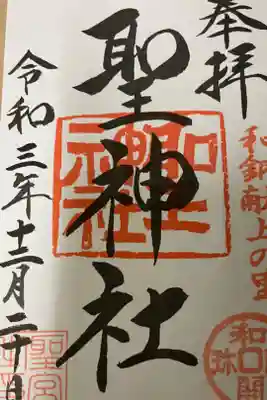 奉拝
和銅献上の里
聖神社
聖神社
和同開珎
令和三年十二月二十日